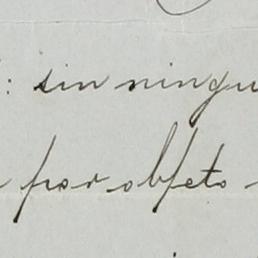 : sin ningu
por objeto